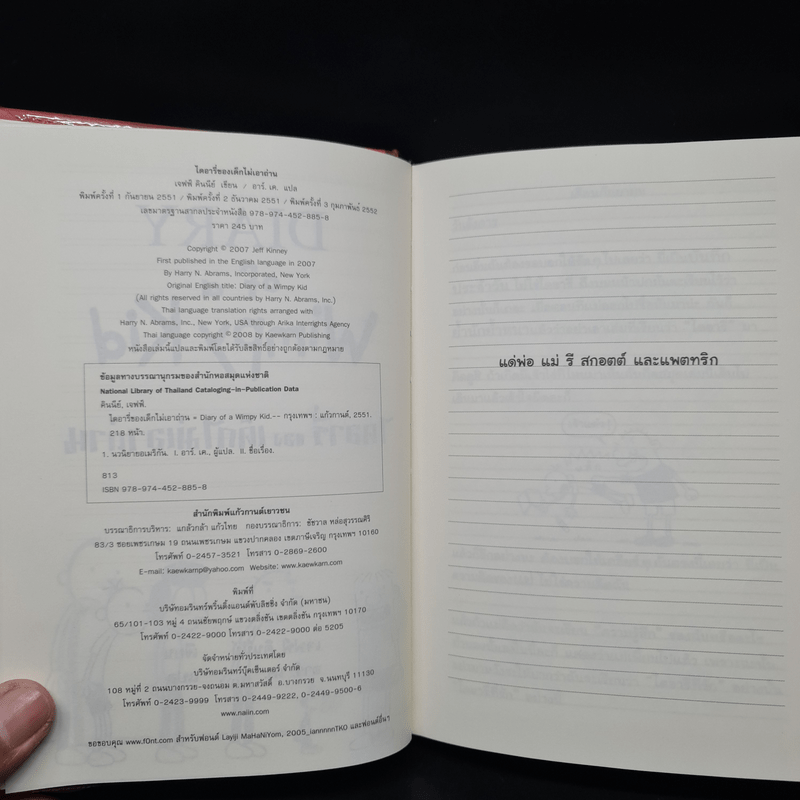 ไดอารี่ของเด็กไม่เอาถ่าน
เจฟฟ์ คินนีย์ เขียน / อาร์. เค. แปล
พิมพ์ครั้งที่ 1 กันยายน 2551 / พิมพ์ครั้งที่ 2 ธันวาคม 2551 / พิมพ์ครั้งที่ 3 กุมภาพันธ์ 2552
เลขมาตรฐานสากลประจำหนังสือ 978-974-452-885-8
ราคา 245 บาท
Copyright © 2007 Jeff Kinney
First published in the English language in 2007
By Harry N. Abrams, Incorporated, New York
Original English title: Diary of a Wimpy Kid
(All rights reserved in all countries by Harry N. Abrams, Inc.)
Thai language translation rights arranged with
Harry N. Abrams, Inc., New York, USA through Arika Interrights Agency
Thai language copyright © 2008 by Kaewkarn Publishing
หนังสือเล่มนี้แปลและพิมพ์โดยได้รับลิขสิทธิ์อย่างถูกต้องตามกฎหมาย
ข้อมูลทางบรรณานุกรมของสำนักหอสมุดแห่งชาติ
National Library of Thailand Cataloging-in-Publication Data
คินนีย์, เจฟฟ์.
ไดอารี่ของเด็กไม่เอาถ่าน = Diary of a Wimpy Kid.-- กรุงเทพฯ : แก้วกานต์, 2551.
218 หน้า.
1. นวนิยายอเมริกัน. I. อาร์. เค., ผู้แปล. II. ชื่อเรื่อง.
813
ISBN 978-974-452-885-8
สำนักพิมพ์แก้วกานต์เยาวชน
บรรณาธิการบริหาร: แกล้วกล้า แก้วไทย กองบรรณาธิการ: ชัชวาล หล่อสุวรรณศิริ
83/3 ซอยเพชรเกษม 19 ถนนเพชรเกษม แขวงปากคลอง เขตภาษีเจริญ กรุงเทพฯ 10160
โทรศัพท์ 0-2457-3521 โทรสาร 0-2869-2600
E-mail: kaewkarnp@yahoo.com Website: www.kaewkarn.com
พิมพ์ที่
บริษัทอมรินทร์พริ้นติ้งแอนด์พับลิชชิ่ง จำกัด (มหาชน)
65/101-103 หมู่ 4 ถนนชัยพฤกษ์ แขวงตลิ่งชัน เขตตลิ่งชัน กรุงเทพฯ 10170
โทรศัพท์ 0-2422-9000 โทรสาร 0-2422-9000 ต่อ 5205
จัดจำหน่ายทั่วประเทศโดย
บริษัทอมรินทร์บุ๊คเซ็นเตอร์ จำกัด
108 หมู่ที่ 2 ถนนบางกรวย-จงถนอม ต.มหาสวัสดิ์ อ.บางกรวย จ.นนทบุรี 11130
โทรศัพท์ 0-2423-9999 โทรสาร 0-2449-9222, 0-2449-9500-6
www.naiin.com
ขอขอบคุณ www.f0nt.com สำหรับฟอนต์ Layiji MaHaNiYom, 2005_iannnnnTKO และฟอนต์อื่นๆ
แด่พ่อ แม่ รี สกอตต์ และแพตทริก